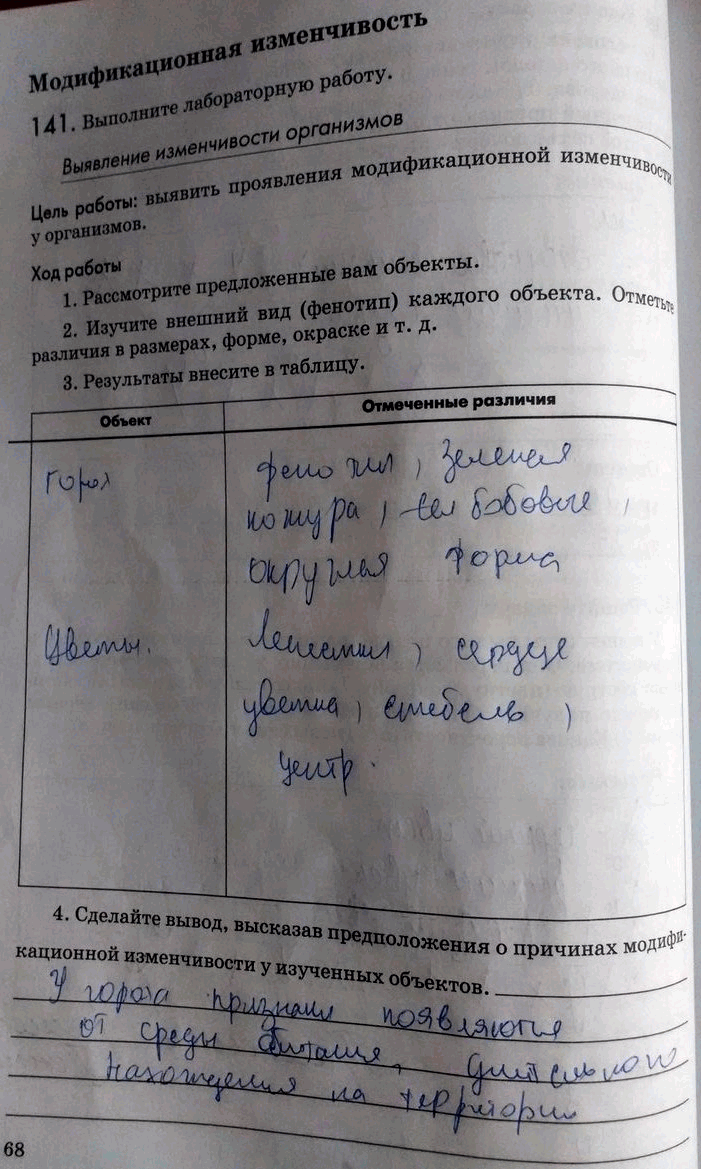 Модификационная изменчивость
141. Выполните лабораторную работу.
Выявление изменчивости организмов
Цель работы: выявить проявления модификационной изменчивости
у организмов.
Ход работы
1. Рассмотрите предложенные вам объекты.
2. Изучите внешний вид (фенотип) каждого объекта. Отметьте
различия в размерах, форме, окраске и т. д.
3. Результаты внесите в таблицу.
Объект
Отмеченные различия
горох
фенотип, зеленая
кожура, бобовые,
округлая форма
Цветы.
Лепестки, сердце
цветка, стебель,
центр.
4. Сделайте вывод, высказав предположения о причинах модифи-
кационной изменчивости у изученных объектов.
У гороха признаки появляются
от среды обитания, длительного
нахождения на территории
68